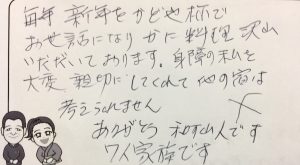 毎年 新年を かどや 杯で
お世話になり かに料理 沢山
いただいております。身障の私を
大変 親切にしてくれて 他の宿は
考えられません
ありがとう 和歌山人です
7人家族です